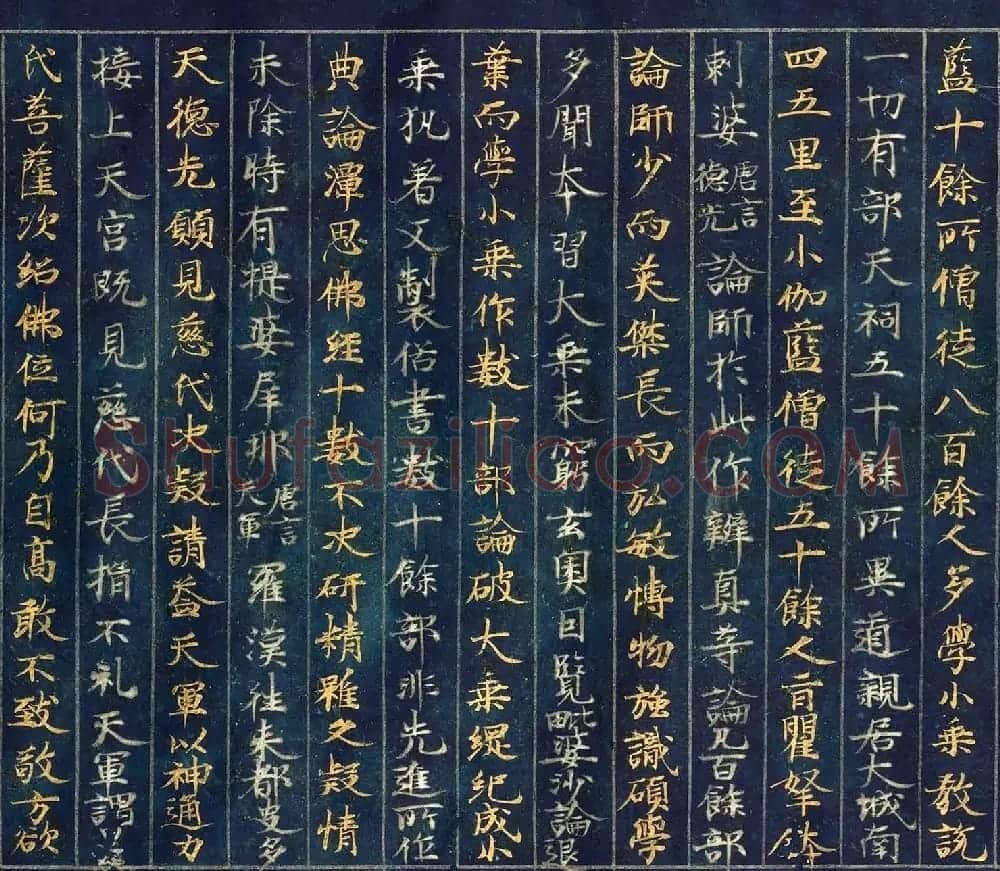 藍十餘所僧徒八百餘人多學小乘教説
一切有部天祠五十餘所異道親居大城南
四五里至小伽藍僧徒五十餘人昔瞿拏鉢
剌婆唐言德光論師於此作辯真等論凡百餘部
論師少而英傑長而弘敏博物強識碩學
多聞本習大乘未窮玄奧因覽毗婆沙論退
業而學小乘作數十部論破大乘綱紀成小
乘執著又製俗書數十餘部非先進所作
典論潭思佛經十數不決研精雖久疑情
未除時有提婆犀那唐言天軍羅漢往來都史多
天德光願見慈氏決疑請益天軍以神通力
接上天宮既見慈氏長揖不礼天軍謂
氏菩薩次紹佛位何乃自高敢不致敬方欲
Shufaziliao.COM